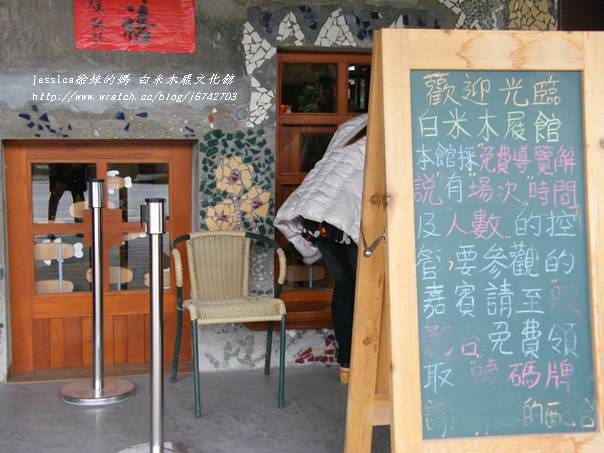 福
jessica徐妹的媽 白米木屐文化館
http://www.wretch.cc/blog/j6742703
歡迎光臨
白米木屐館
本館採免費導覽解
說有場次時間
及人數的控
管,要參觀的
嘉賓請至服
台免費領
取號碼牌
的配合